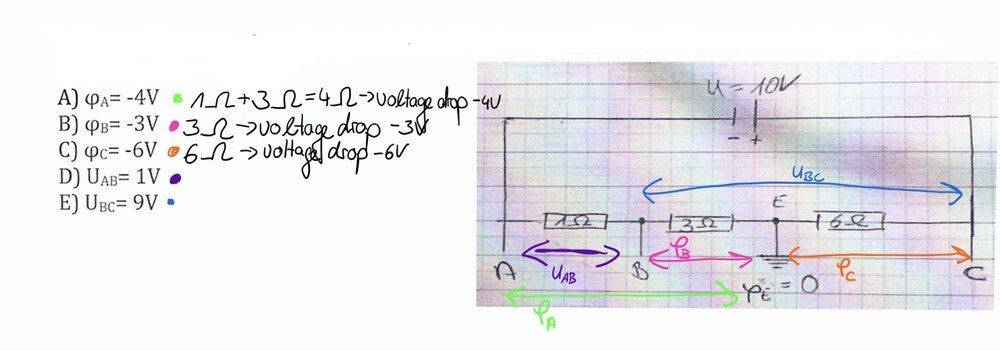 A) φA= -4V • 1Ω+3Ω=4Ω→voltage drop -4V
B) φB= -3V • 3Ω→voltage drop -3V
C) φC= -6V • 6Ω→voltage drop -6V
D) UAB= 1V •
E) UBC= 9V •
U = 10V
- +
UBC
E
1Ω 3Ω 6Ω
A UAB B φB φC C
φE = 0
φA